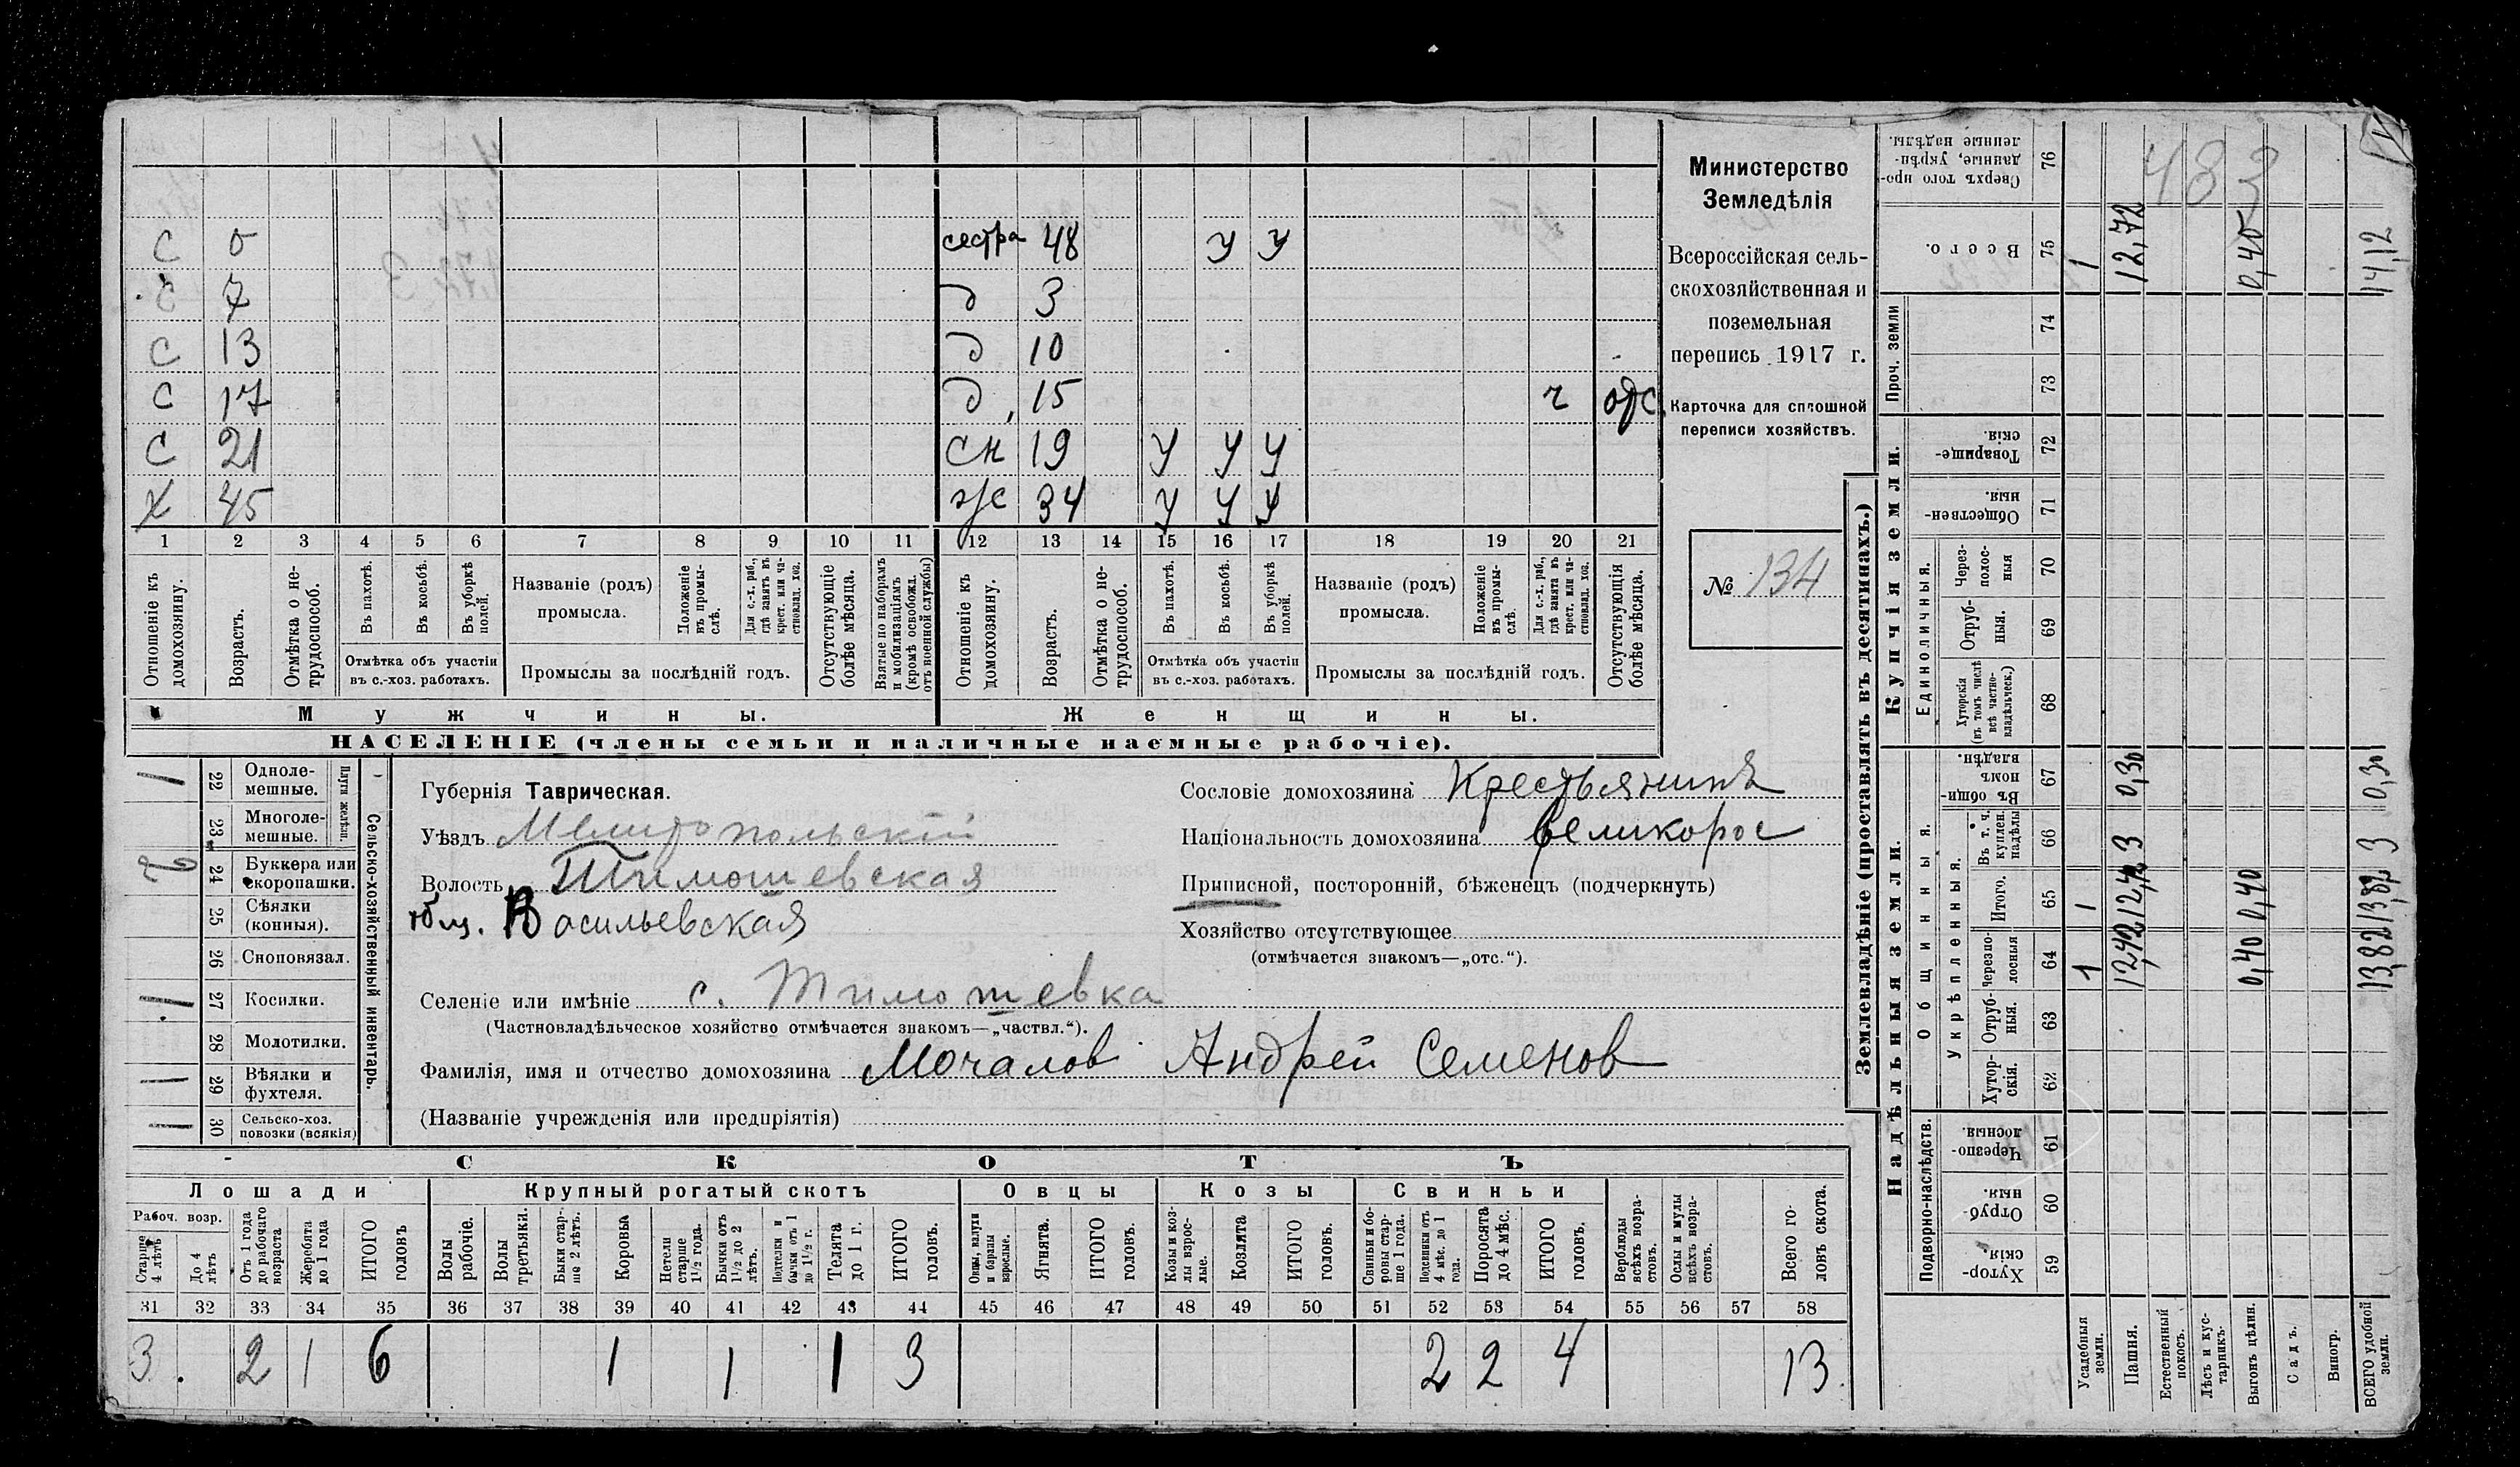 С 5 сестра 48 у у
С 7 д 3
С 13 д 10
С 17 д 15 ч отс.
С 21 сн 19 у у у
Х 45 ж 34 у у у
1 2 3 4 5 6 7 8 9 10 11 12 13 14 15 16 17 18 19 20 21
Отношеніе къ домохозяину.
Возрастъ.
Отмѣтка о нетрудоспособ.
Въ пахотѣ.
Въ косьбѣ.
Въ уборкѣ полей.
Отмѣтка объ участіи
въ с.-хоз. работахъ.
Названіе (родъ)
промысла.
Положеніе въ промыслѣ.
Для с.-х. раб., гдѣ занятъ въ крест. или частновлад. хоз.
Промыслы за послѣдній годъ.
Отсутствующіе болѣе мѣсяца.
Взятые по наборамъ и мобилизаціямъ (кромѣ освобожд. отъ военной службы)
Отношеніе къ домохозяину.
Возрастъ.
Отмѣтка о нетрудоспособ.
Въ пахотѣ.
Въ косьбѣ.
Въ уборкѣ полей.
Отмѣтка объ участіи
въ с.-хоз. работахъ.
Названіе (родъ)
промысла.
Положеніе въ промыслѣ.
Для с.-х. раб., гдѣ занята въ крест. или частновлад. хоз.
Промыслы за послѣдній годъ.
Отсутствующія болѣе мѣсяца.
Мужчины.
Женщины.
НАСЕЛЕНІЕ (члены семьи и наличные наемные рабочіе).
Министерство
Земледѣлія
Всероссійская сель-
скохозяйственная и
поземельная
перепись 1917 г.
Карточка для сплошной
переписи хозяйствъ.
№ 134
Сельско-хозяйственный инвентарь.
Плуги желѣзн.
1 22 Одноле-
мешные.
23 Многоле-
мешные.
24 Буккера или
скоропашки.
25 Сѣялки
(конныя).
26 Сноповязал.
1 27 Косилки.
28 Молотилки.
1 29 Вѣялки и
фухтеля.
1 30 Сельско-хоз.
повозки (всякія)
Губернія Таврическая.
Уѣздъ Мелитопольскій
Волость Тимошевская
Васильевская
Селеніе или имѣніе с. Тимошевка
(Частновладѣльческое хозяйство отмѣчается знакомъ—„частвл.“).
Фамилія, имя и отчество домохозяина Мочалов Андрей Семенов
(Названіе учрежденія или предпріятія)
Сословіе домохозяина Крестьянинъ
Національность домохозяина великорос
Приписной, посторонній, бѣженецъ (подчеркнуть)
Хозяйство отсутствующее
(отмѣчается знакомъ—„отс.“).
СКОТЪ
Лошади
Крупный рогатый скотъ
Овцы
Козы
Свиньи
Рабоч. возр.
Старше 4 лѣтъ
До 4 лѣтъ
Отъ 1 года до рабочаго возраста
Жеребята до 1 года
ИТОГО головъ
Волы рабочіе.
Волы третьяки.
Быки старше 2 лѣтъ.
Коровы
Нетели старше 1½ года.
Бычки отъ 1½ до 2 лѣтъ.
Подтелки и бычки отъ 1 до 1½ г.
Телята до 1 г.
ИТОГО головъ.
Овцы, валухи и бараны взрослые.
Ягнята.
ИТОГО головъ.
Козы и козлы взрослые.
Козлята
ИТОГО головъ.
Свиньи и боровы старше 1 года.
Подсвинки отъ 4 мѣс. до 1 года.
Поросята до 4 мѣс.
ИТОГО головъ.
Верблюды всѣхъ возрастовъ.
Ослы и мулы всѣхъ возрастовъ.
Всего головъ скота.
31 32 33 34 35 36 37 38 39 40 41 42 43 44 45 46 47 48 49 50 51 52 53 54 55 56 57 58
3 2 1 6 1 1 1 3 2 2 4 13
Землевладѣніе (проставлять въ десятинахъ.)
Надѣльныя земли.
Купчія земли.
Проч. земли
Подворно-наслѣдств.
Общинныя.
Укрѣпленныя.
Единоличныя.
Сверхъ того проданные, укрѣпленные надѣлы. 76 483
Всего. 75 1 12,72 0,40 14,12
74
73
Товарищескія. 72
Общественныя. 71
Черезполосныя 70
Отрубныя. 69
Хуторскія (въ томъ числѣ всѣ частновладѣльческ.) 68
Въ общинномъ владѣн. 67 0,30 0,30
Въ т. ч. куплен. надѣлы 66 3 3
Итого. 65 1 12,42 0,40 13,82
Черезполосныя 64 1 12,42 0,40 13,82
Отрубныя. 63
Хуторскія. 62
Черезполосныя. 61
Отрубныя. 60
Хуторскія. 59
Усадебныя земли.
Пашня.
Естественный покосъ.
Лѣсъ и кустарникъ.
Выгонъ цѣлин.
Садъ.
Виногр.
ВСЕГО удобной земли.